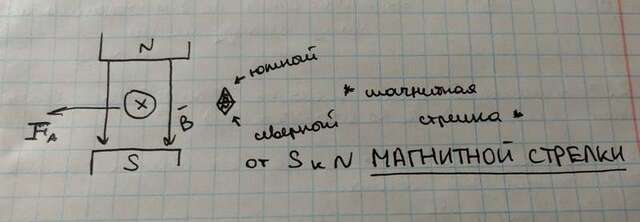 N
южный
* магнитная
стрелка *
B
F_A
северный
S
от S к N МАГНИТНОЙ СТРЕЛКИ